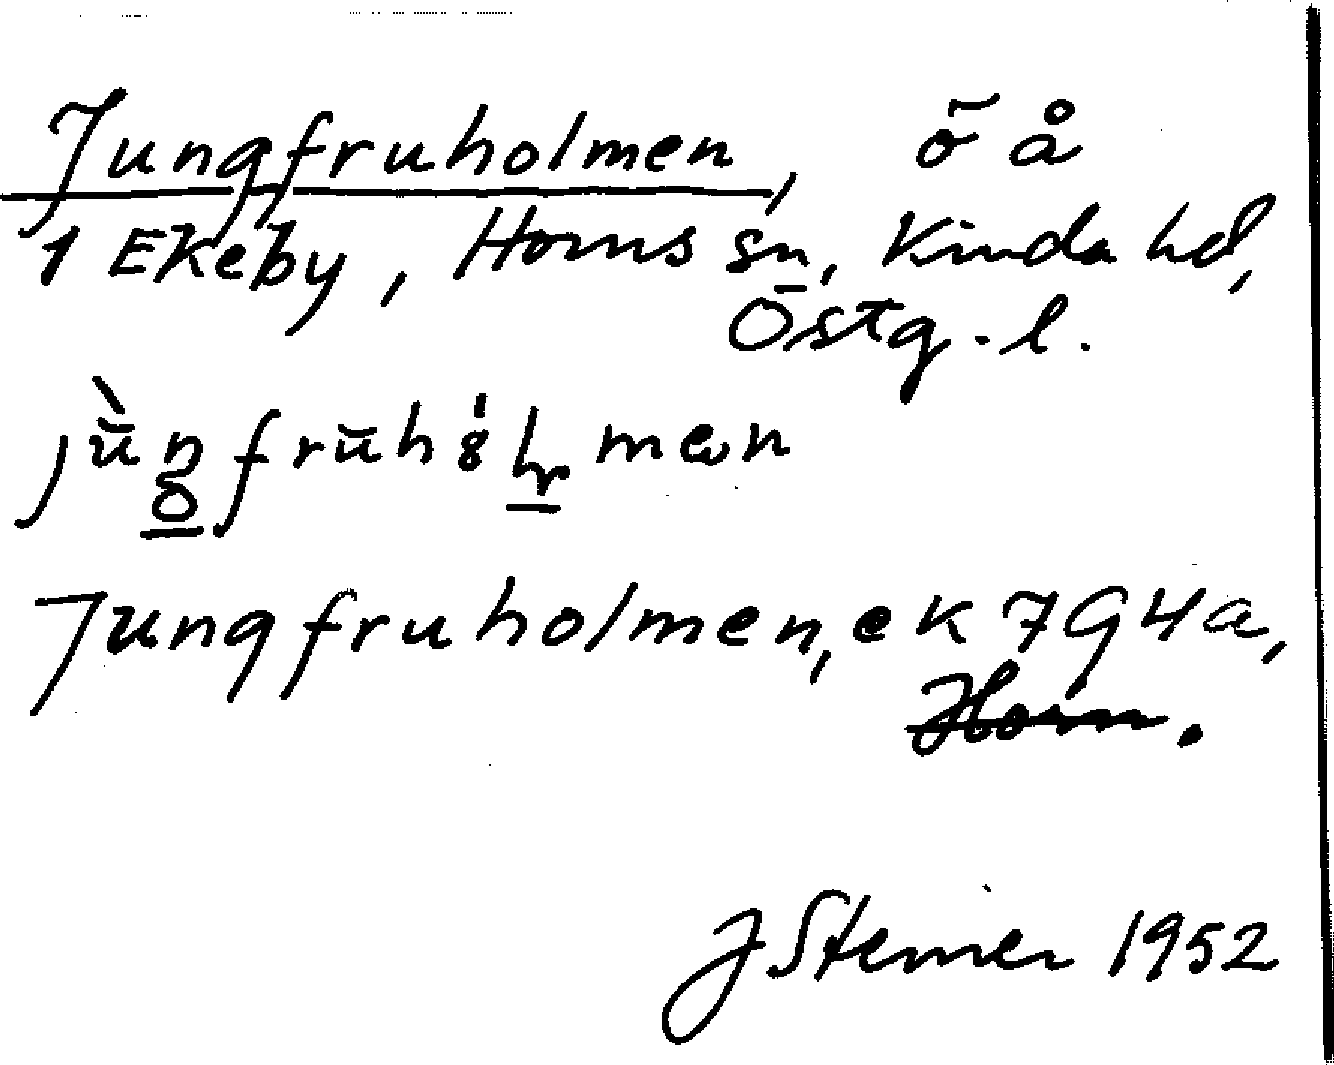 Jungfruholmen, ö å
1 Ekeby, Horns sn, Kinda hd,
Östg.l.
Jungfruholmen, ek 7G4a,
Horn.
J Steiner 1952